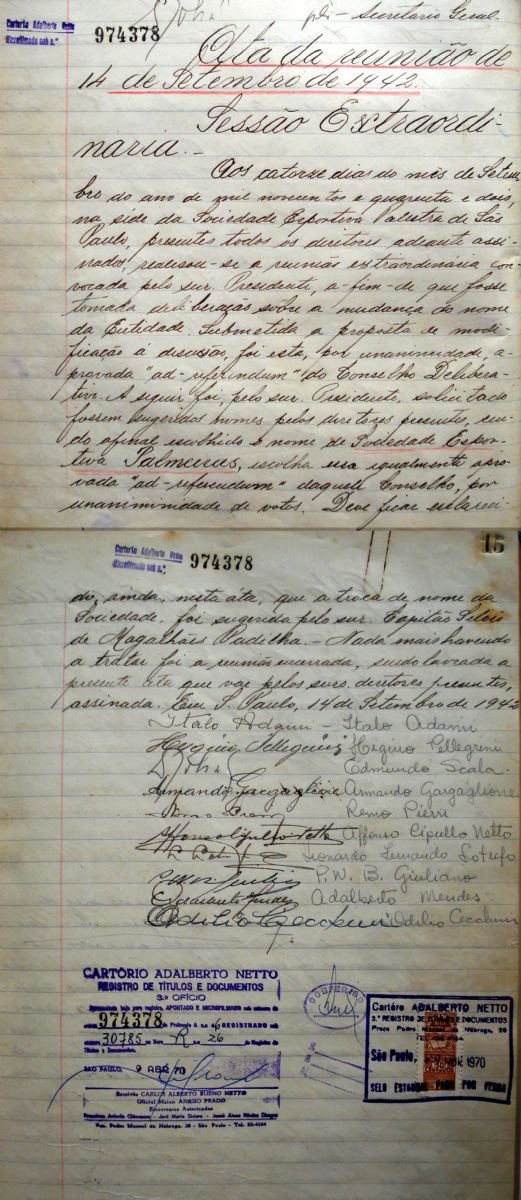 Cartorio Adalberto Netto
Microfilmado sob n.º 974378
pdi - Secretario Geral.
Ata da reunião de
14 de Setembro de 1942.
Sessão Extraordi-
naria. -
Aos catorze dias do mês de Setem-
bro do ano de mil novecentos e quarenta e dois,
na séde da Sociedade Esportiva Palestra de São
Paulo, presentes todos os diretores adeante assi-
nados, realisou-se a reunião extraordinária con-
vocada pelo snr. Presidente, a-fim-de que fosse
tomada deliberação sobre a mudança do nome
da Entidade. Submetida a proposta de modi-
ficação á discussão, foi esta, por unanimidade, a-
provada "ad-referendum" do Conselho Delibera-
tivo. A seguir foi, pelo snr. Presidente, solicitado
fossem sugeridos nomes pelos diretores presentes, sen-
do afinal escolhido o nome de Sociedade Espor-
tiva Palmeiras, escolha essa igualmente apro-
vada "ad-referendum" daquele Conselho, por
unanimidade de votos. Deve ficar esclareci-
Cartorio Adalberto Netto
Microfilmado sob n.º 974378
15
do, ainda, nesta ata, que a troca de nome da
Sociedade, foi sugerida pelo snr. Capitão Silvio
de Magalhães Padilha. - Nada mais havendo
a tratar foi a reunião encerrada, sendo lavrada a
presente ata que vae pelos snrs. diretores presentes,
assinada. Em S. Paulo, 14 de Setembro de 1942
Italo Adami - Italo Adami
Higino Pellegrini Higino Pellegrini
Edmundo Scala
Armando Gargaglione Armando Gargaglione
Remo Pierri
Affonso Cipullo Netto Affonso Cipullo Netto
Leonardo Fernando Lotufo
P. W. B. Giuliano
Adalberto Mendes Adalberto Mendes
Odilio Cecchini Odilio Cecchini
CARTÓRIO ADALBERTO NETTO
REGISTRO DE TÍTULOS E DOCUMENTOS
3.º OFÍCIO
Apresentado hoje para registro, APONTADO E MICROFILMADO sob número de
ordem 974378 do Protocolo A n.º 16 REGISTRADO sob
número 30785 no Livro R n.º 26 de Registro de
Títulos e Documentos.
SÃO PAULO, 9 ABR 70
Escrivão CARLOS ALBERTO BUENO NETTO
Oficial Maior: ANESIO PRADO
Escreventes Autorizados
Rua Padre Manoel da Nóbrega, 20 - São Paulo - Tel. 32-4164
CONFERIDO
Cartóro ADALBERTO NETTO
3.º REGISTRO DE TÍTULOS E DOCUMENTOS
Praça Padre Manoel da Nóbrega, 20
São Paulo, 9 ABR 1970
SELO ESTADUAL PAGO POR VERBA